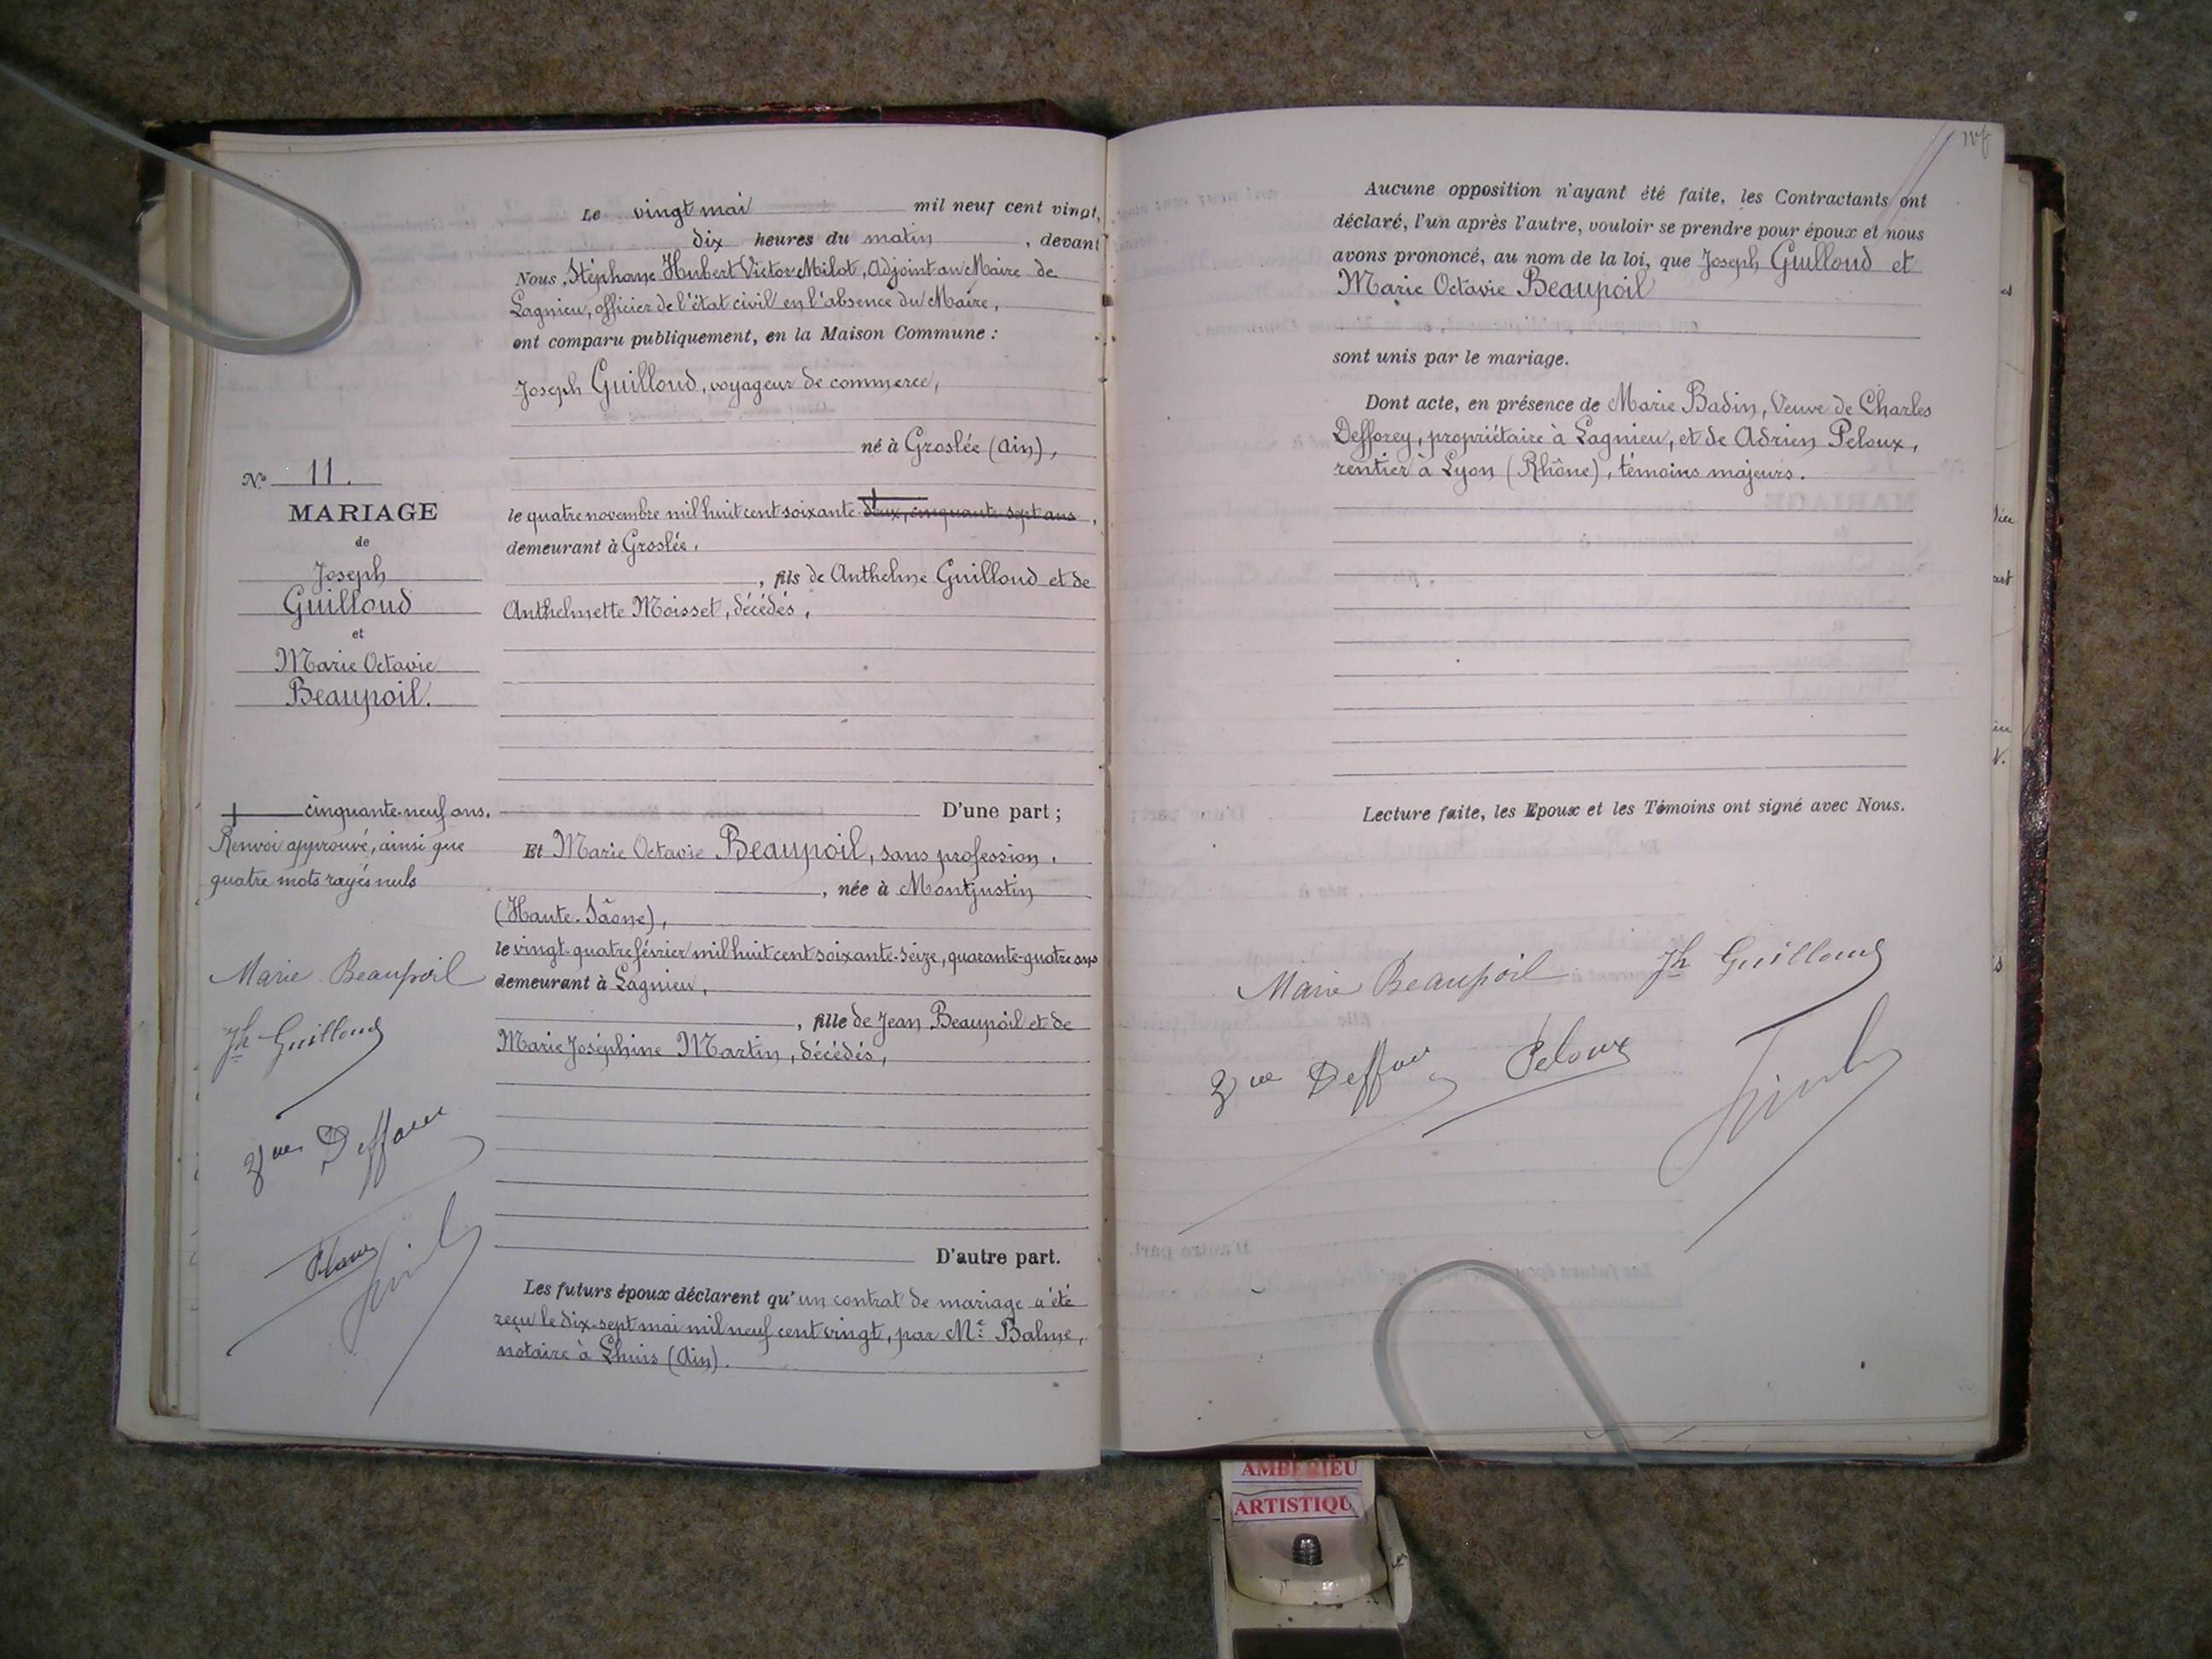 Le vingt mai mil neuf cent vingt,
dix heures du matin, devant
Nous, Stéphane Hubert Victor Milot, Adjoint au Maire de
Lagnieu, officier de l'état civil en l'absence du Maire,
ont comparu publiquement, en la Maison Commune :
Joseph Guilloud, voyageur de commerce,
né à Groslée (Ain),
le quatre novembre mil huit cent soixante deux, cinquante-sept ans,
demeurant à Groslée,
, fils de Anthelme Guilloud et de
Anthelmette Moisset, décédés,
D'une part ;
Et Marie Octavie Beaupoil, sans profession,
, née à Montjustin
(Haute-Saône),
le vingt-quatre février mil huit cent soixante-seize, quarante-quatre ans
demeurant à Lagnieu,
, fille de Jean Beaupoil et de
Marie Joséphine Martin, décédés,
D'autre part.
Les futurs époux déclarent qu'un contrat de mariage a été
reçu le dix-sept mai mil neuf cent vingt, par Me Balme,
notaire à Lhuis (Ain).
No 11.
MARIAGE
de
Joseph
Guilloud
et
Marie Octavie
Beaupoil.
cinquante-neuf ans.
Renvoi approuvé, ainsi que
quatre mots rayés nuls
Marie Beaupoil
Jh Guilloud
Vve Defforey
Peloux
Aucune opposition n'ayant été faite, les Contractants ont
déclaré, l'un après l'autre, vouloir se prendre pour époux et nous
avons prononcé, au nom de la loi, que Joseph Guilloud et
Marie Octavie Beaupoil
sont unis par le mariage.
Dont acte, en présence de Marie Badin, Veuve de Charles
Defforey, propriétaire à Lagnieu, et de Adrien Peloux,
rentier à Lyon (Rhône), témoins majeurs.
Lecture faite, les Epoux et les Témoins ont signé avec Nous.
Marie Beaupoil Jh Guilloud
Vve Defforey Peloux
AMBERIEU
ARTISTIQU